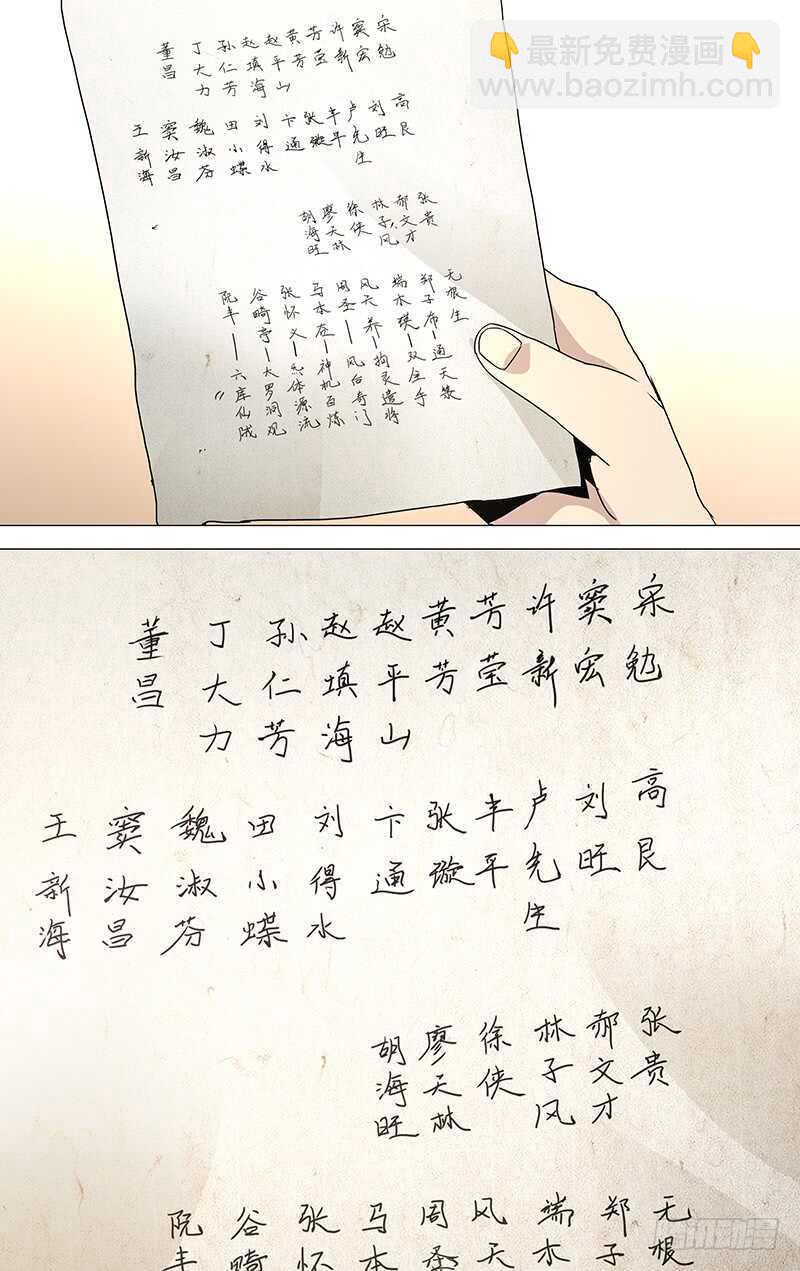 最新免费漫画
www.baozimh.com
宋勉
窦宏
许新
芳莹
黄芳
赵平山
赵填海
孙仁芳
丁大力
董昌
高艮
刘旺
卢先生
丰平
张璇
卞通
刘得水
田小蝶
魏淑芬
窦汝昌
王新海
张贵
郝文才
林子风
徐侠
廖天林
胡海旺
无根生
郑子布—通天箓
端木瑛—双全手
风天养—拘灵遣将
周圣—风后奇门
马本在—神机百炼
张怀义—炁体源流
谷畸亭—大罗洞观
阮丰—六库仙贼
宋勉
窦宏
许新
芳莹
黄芳
赵平山
赵填海
孙仁芳
丁大力
董昌
高艮
刘旺
卢先生
丰平
张璇
卞通
刘得水
田小蝶
魏淑芬
窦汝昌
王新海
张贵
郝文才
林子风
徐侠
廖天林
胡海旺
无根
郑子
端木
风天
周圣
马本
张怀
谷畸
阮丰